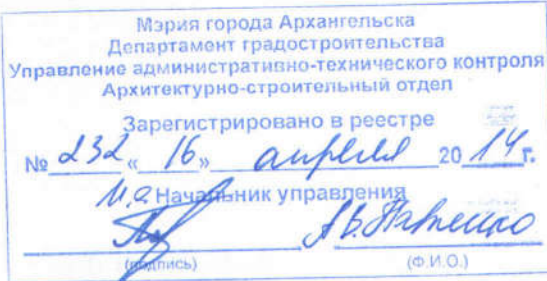 Мэрия города Архангельска
Департамент градостроительства
Управление административно-технического контроля
Архитектурно-строительный отдел
Зарегистрировано в реестре
№ 232 « 16 » апреля 20 14 г.
И.о. Начальник управления
А.В.
(подпись) (Ф.И.О.)